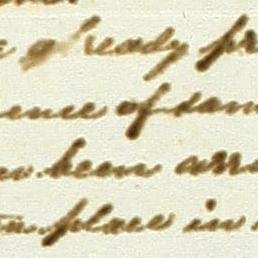 already pr
ence of sam
been arra
place in